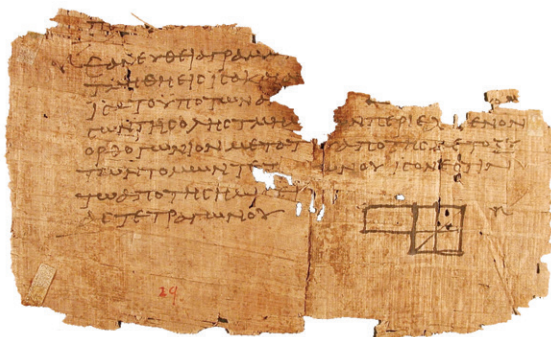 ΕΑΝΕΥΘΕΙΑΓΡΑΜ
ΤΜΗΘΗΕΙϹΙϹΑΚΑΙ
ΙϹΑΤΟΥΠΟΤΩΝΑ
ϹΩΝΤΗϹΟΛΗϹΤΜΗ ΩΝΠΕΡΙΕΧΟΜΕΝΟΝ
ΟΡΘΟΓΩΝΙΟΝΜΕΤΑΤ ΑΠΟΤΗϹΜΕΤΟΞΥ
ΤΩΝΤΟΜΩΝΤΕΤ ΩΝΟΥΙϹΟΝΕϹΤΙΝ
ΤΩΑΠΟΤΗϹΗΜΙ
ΑϹΤΕΤΡΑΓΩΝΟΥ
29.